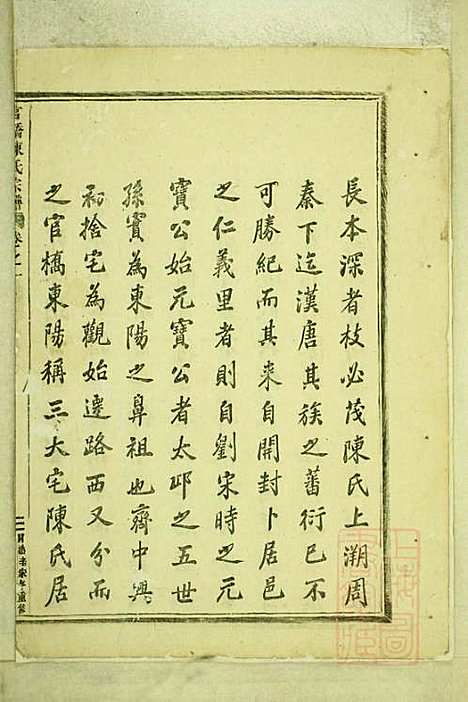 長本深者枝必茂陳氏上溯周
秦下迄漢唐其族之蕃衍已不
可勝紀而其来自開封卜居邑
之仁義里者則自劉宋時之元
寶公始元寶公者太邱之五世
孫實為東陽之鼻祖也齊中興
初捨宅為觀始遷路西又分而
之官橋東陽稱三大宅陳氏居
官橋陳氏宗譜 卷之一